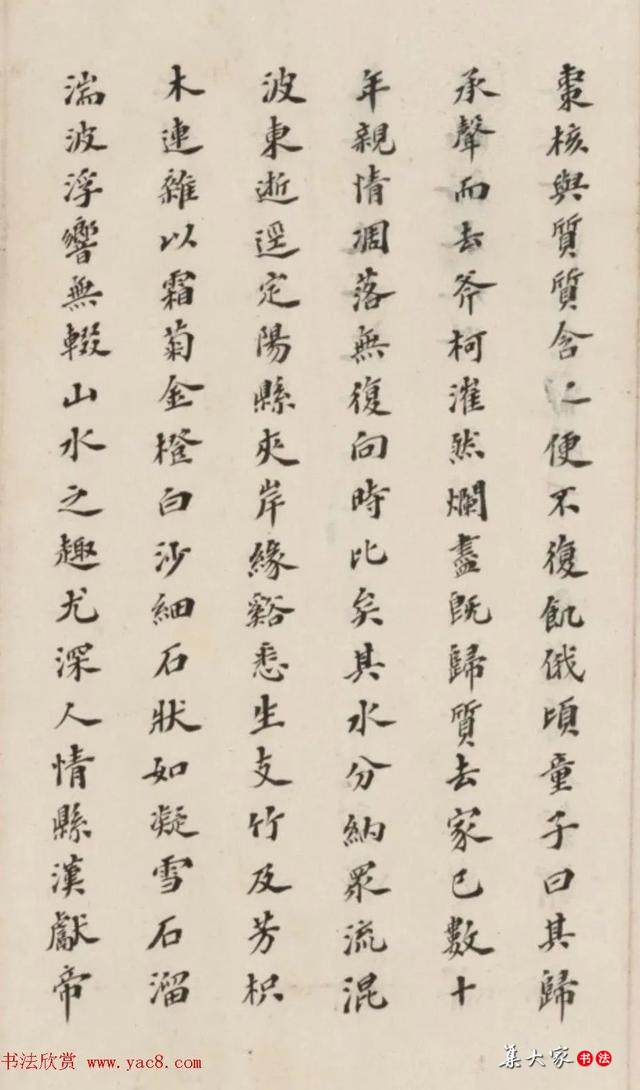 棗核與質質含之便不復飢俄頃童子曰其歸
承聲而去斧柯漼然爛盡既歸質去家已數十
年親情凋落無復向時比矣其水分納眾流混
波東逝逕定陽縣夾岸緣谿悉生支竹及芳枳
木連雜以霜菊金橙白沙細石狀如凝雪石溜
湍波浮響無輟山水之趣尤深人情縣漢獻帝
书法欣赏 www.yac8.com
集大家 书法